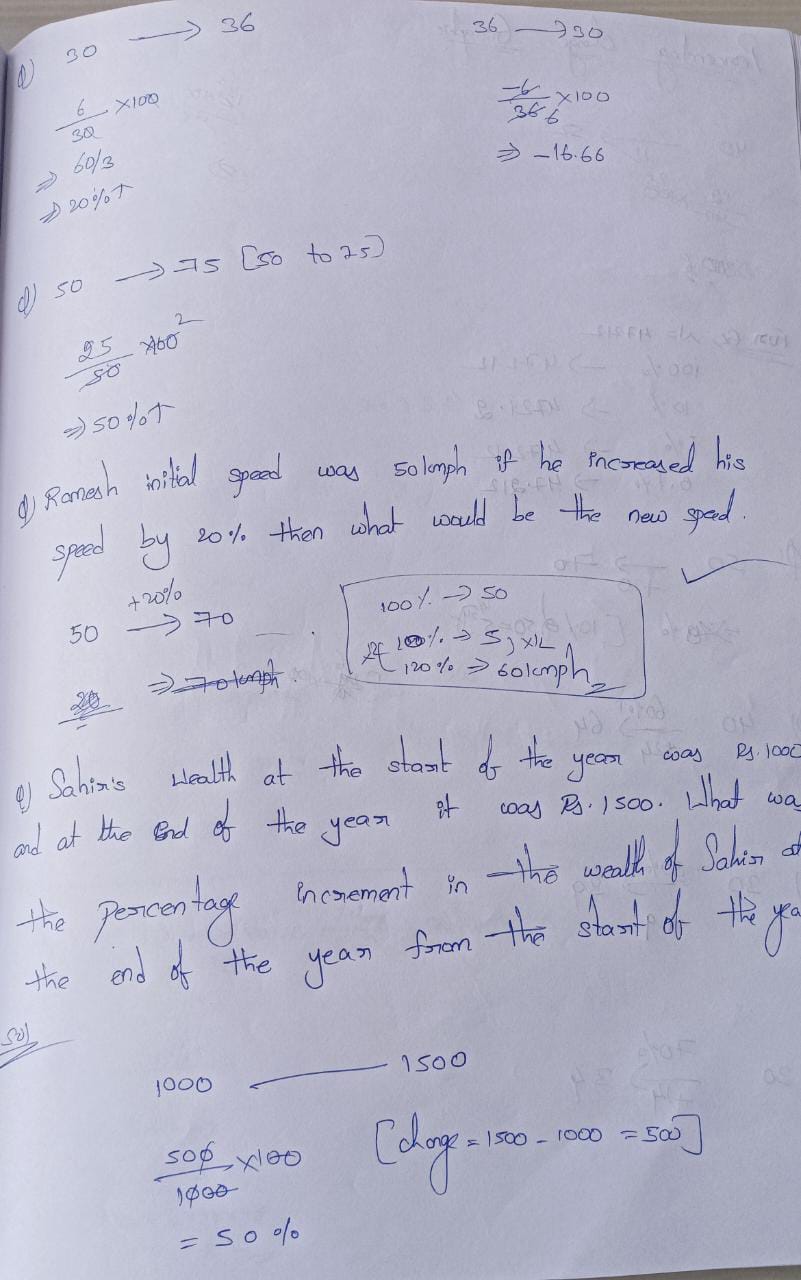 Q) 30 → 36
36 → 30
6/30 ×100
-6/36 6 ×100
⇒ 60/3
⇒ -16.66
⇒ 20%↑
Q) 50 → 75 [50 to 75]
25/50 ×100 2
⇒ 50%↑
Q) Ramesh initial speed was 50kmph if he increased his
speed by 20% then what would be the new speed.
50 +20% → 70
100% → 50
100% → 5) x12
120% ⇒ 60kmph
20 ⇒ 70kmph.
Q) Sahir's Wealth at the start of the year was Rs. 1000
and at the End of the year it was Rs. 1500. What wa
the percentage increment in the wealth of Sahir at
the end of the year from the start of the yea
Sol
1000 — 1500
500/1000 ×100 [change = 1500 - 1000 = 500]
= 50%